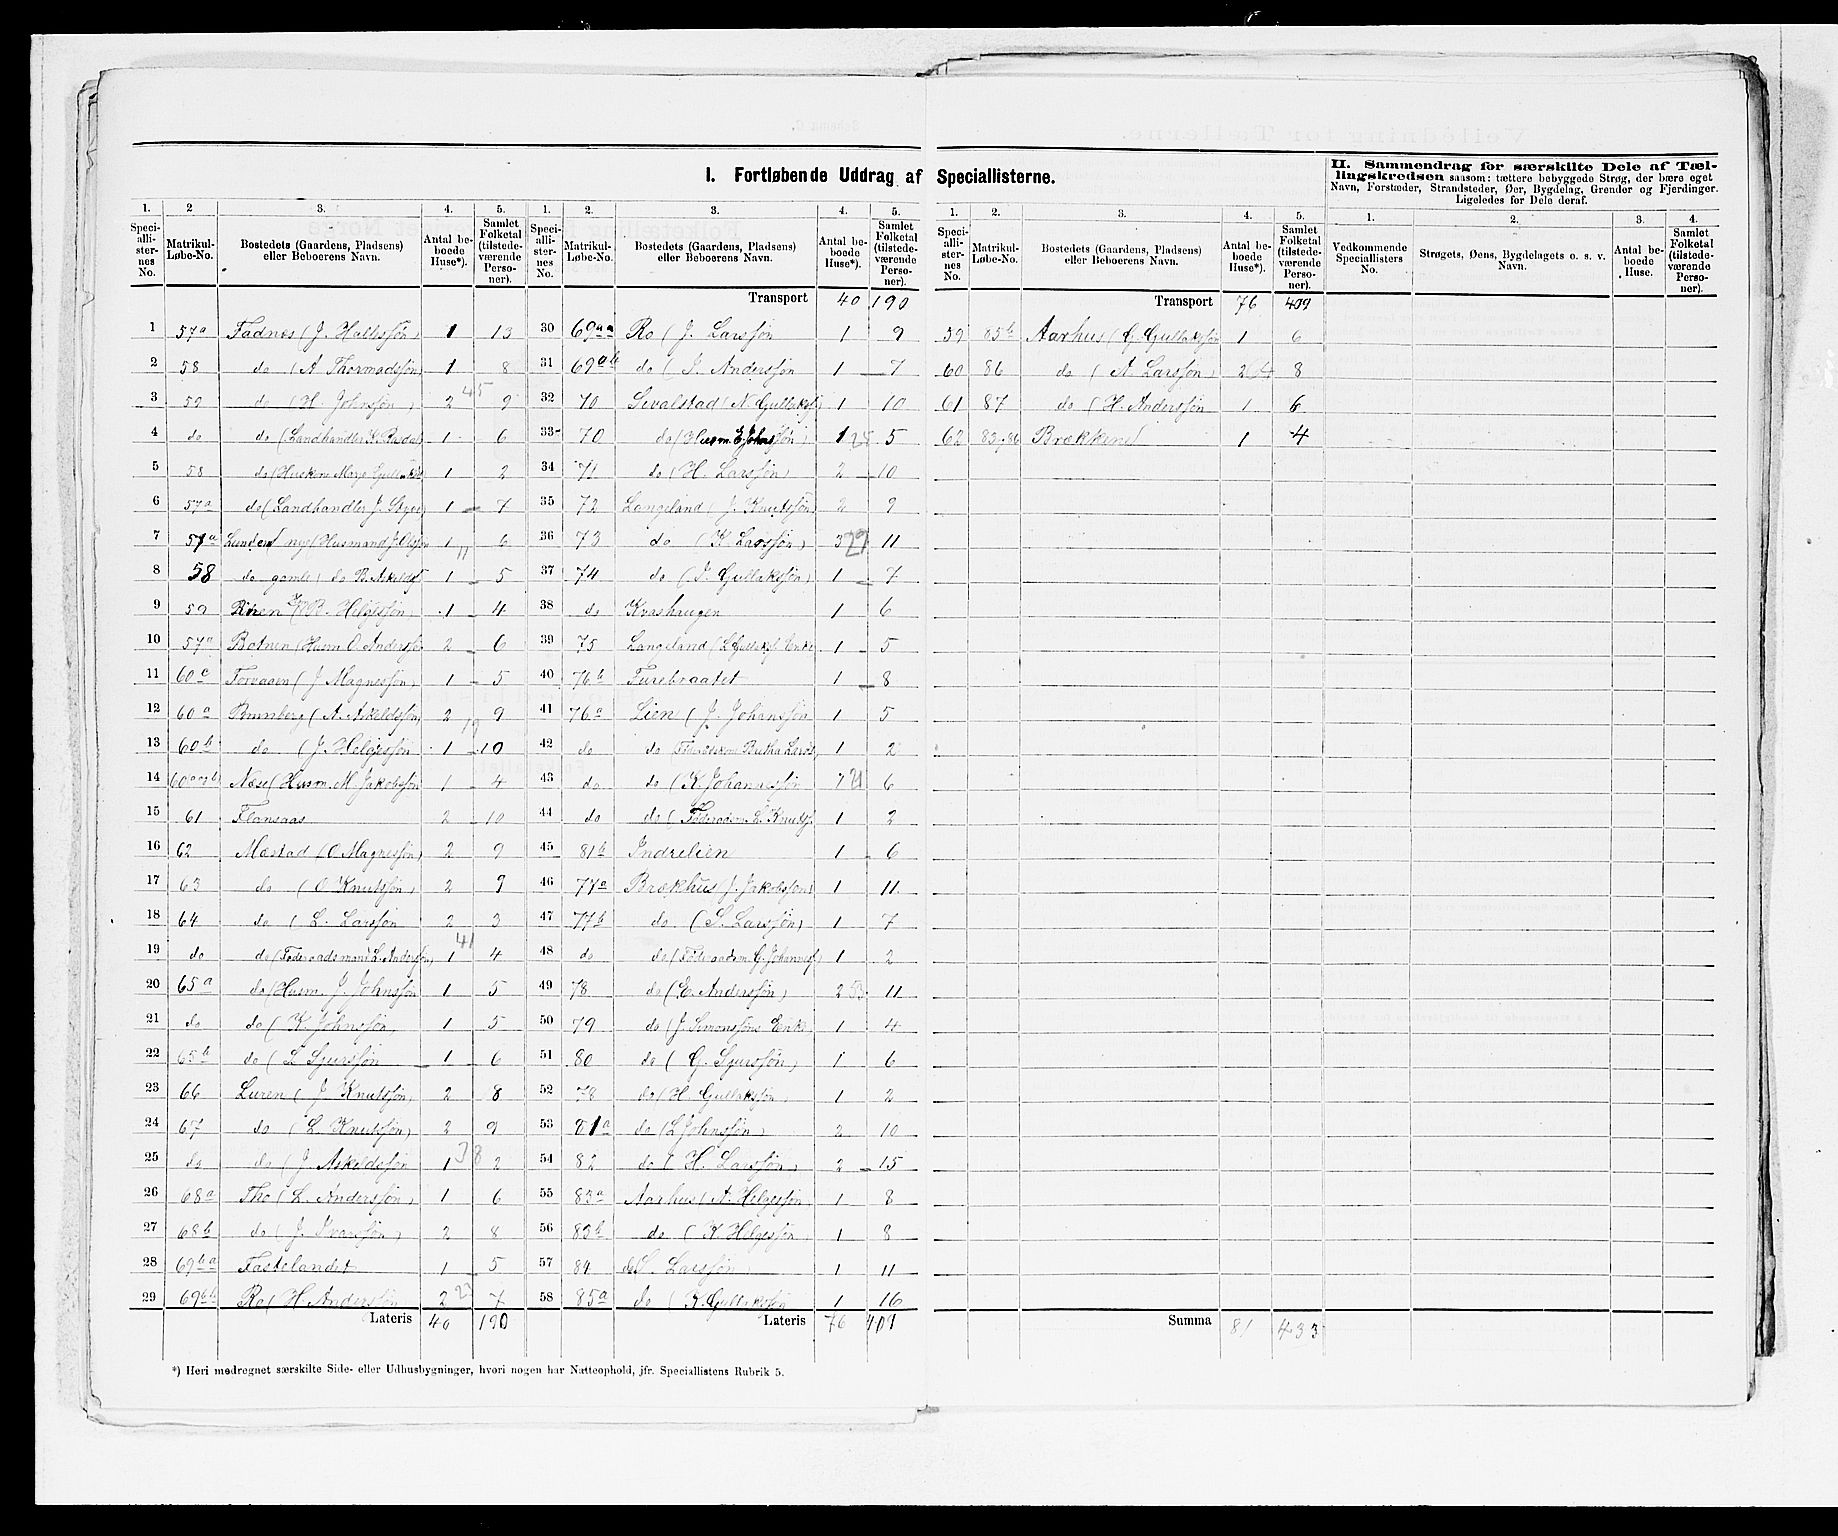 I. Fortløbende Uddrag af Speciallisterne.
II. Sammendrag for særskilte Dele af Tællingskredsen saasom: tættere bebyggede Strøg, der bære eget
Navn, Forstæder, Strandsteder, Øer, Bygdelag, Grender og Fjerdinger.
Ligeledes for Dele deraf.
1. 2 3. 4. 5.
Speciallisternes No. Matrikul-Løbe-No. Bostedets (Gaardens, Pladsens) eller Beboerens Navn. Antal beboede Huse*). Samlet Folketal (tilstedeværende Personer).
1 57a Fadnes (J. Hallessøn) 1 13
2 58 do (A Thormodssøn) 1 8
3 59 do (H. Johnsøn) 2 9
4 do do (Landhandler K. Rasdal 1 6
5 58 do (Huskone Marje Gullaks 1 2
6 57a do (Landhandler J. 1 7
7 57a Lunden nye (Husmand J. Olssøn 1 6
8 58 do gamle do B. Askelds 1 5
9 59 Helgessøn) 1 4
10 57a Botnen (Husm O. Anderssø 2 6
11 60c (J. Magnessøn) 1 5
12 60a (A. Askeldssøn) 2 9
13 60b do (J. Helgessøn 1 10
14 Næse (Husm. M. Jakobssøn 1 4
15 61 Flonsaas 2 10
16 62 Mæstad (O. Magnessøn) 2 9
17 63 do (O Knutssøn) 2 9
18 64 do (L. Larssøn 2 3
19 do do (Føderaadsmand L. Anderssøn) 1 4
20 65a do (Husm. J. Johnsøn 1 5
21 do do (K. Johnsøn, 1 5
22 65b do (L Sjurssøn 1 6
23 66 Luren (J. Knutssøn) 2 8
24 67 do (L. Knutssøn) 2 9
25 do do (J. Askeldssøn 1 2
26 68a Tho (L. Anderssøn) 1 6
27 68b do (J. Ivarssøn) 2 8
28 69ba Fastelandet 1 5
29 69bb Ro (H. Anderssøn 2 7
Lateris 40 190
Transport 40 190
30 69aa Ro (J. Larssøn 1 9
31 69ab do (I. Anderssøn 1 7
32 70 Sivalstad (N. Gullaks) 1 10
33 70 do (Husm. E. Johnssøn) 1 5
34 71 do (H. Larssøn) 2 10
35 72 Langeland (J. Knutssøn) 2 9
36 73 do (K Larssøn) 3 11
37 74 do (J. Gullakssøn) 1 7
38 do Kvashaugen 1 6
39 75 Langeland (L Gullaks Enke 1 5
40 76b Furebraatet 1 8
41 76a Lien (J. Johanssøn 1 5
42 do do 1 2
43 do do (K. Johannessøn 6
44 do do (Føderadsm. L. Knuts 1 2
45 81b Indrelien 1 6
46 77a Brækhus (J. Jakobssøn) 1 11
47 77b do. (S. Larssøn) 1 7
48 do do (Føderaadsm. G. Johannes) 1 2
49 78 do (E. Anderssøn) 2 11
50 79 do (J. Simonssøns Enke) 1 4
51 80 do (G. Sjurssøn) 1 6
52 78 do (H. Gullakssøn, 1 2
53 81a do (L Johnssøn) 2 10
54 82 do (H. Larssøn) 2 15
55 83a Aarhus (A. Helgessøn) 1 8
56 83b do (K. Helgessøn) 1 8
57 84 do S. Larssøn) 1 11
58 85a do (K. Gullakssøn 1 16
Lateris 76 409
Transport 76 409
59 85b Aarhus (G Gullakssøn 1 6
60 86 do (A. Larssøn) 2 8
61 87 do (H. Anderssøn 1 6
62 Brækkene 1 4
Summa 81 433
1. 2. 3. 4.
Vedkommende Speciallisters No. Strøgets, Øens, Bygdelagets o. s. v. Navn. Antal beboede Huse. Samlet Folketal (tilstedeværende Personer).
*) Heri medregnet særskilte Side- eller Udhusbygninger, hvori nogen har Natteophold, jfr. Speciallistens Rubrik 5.